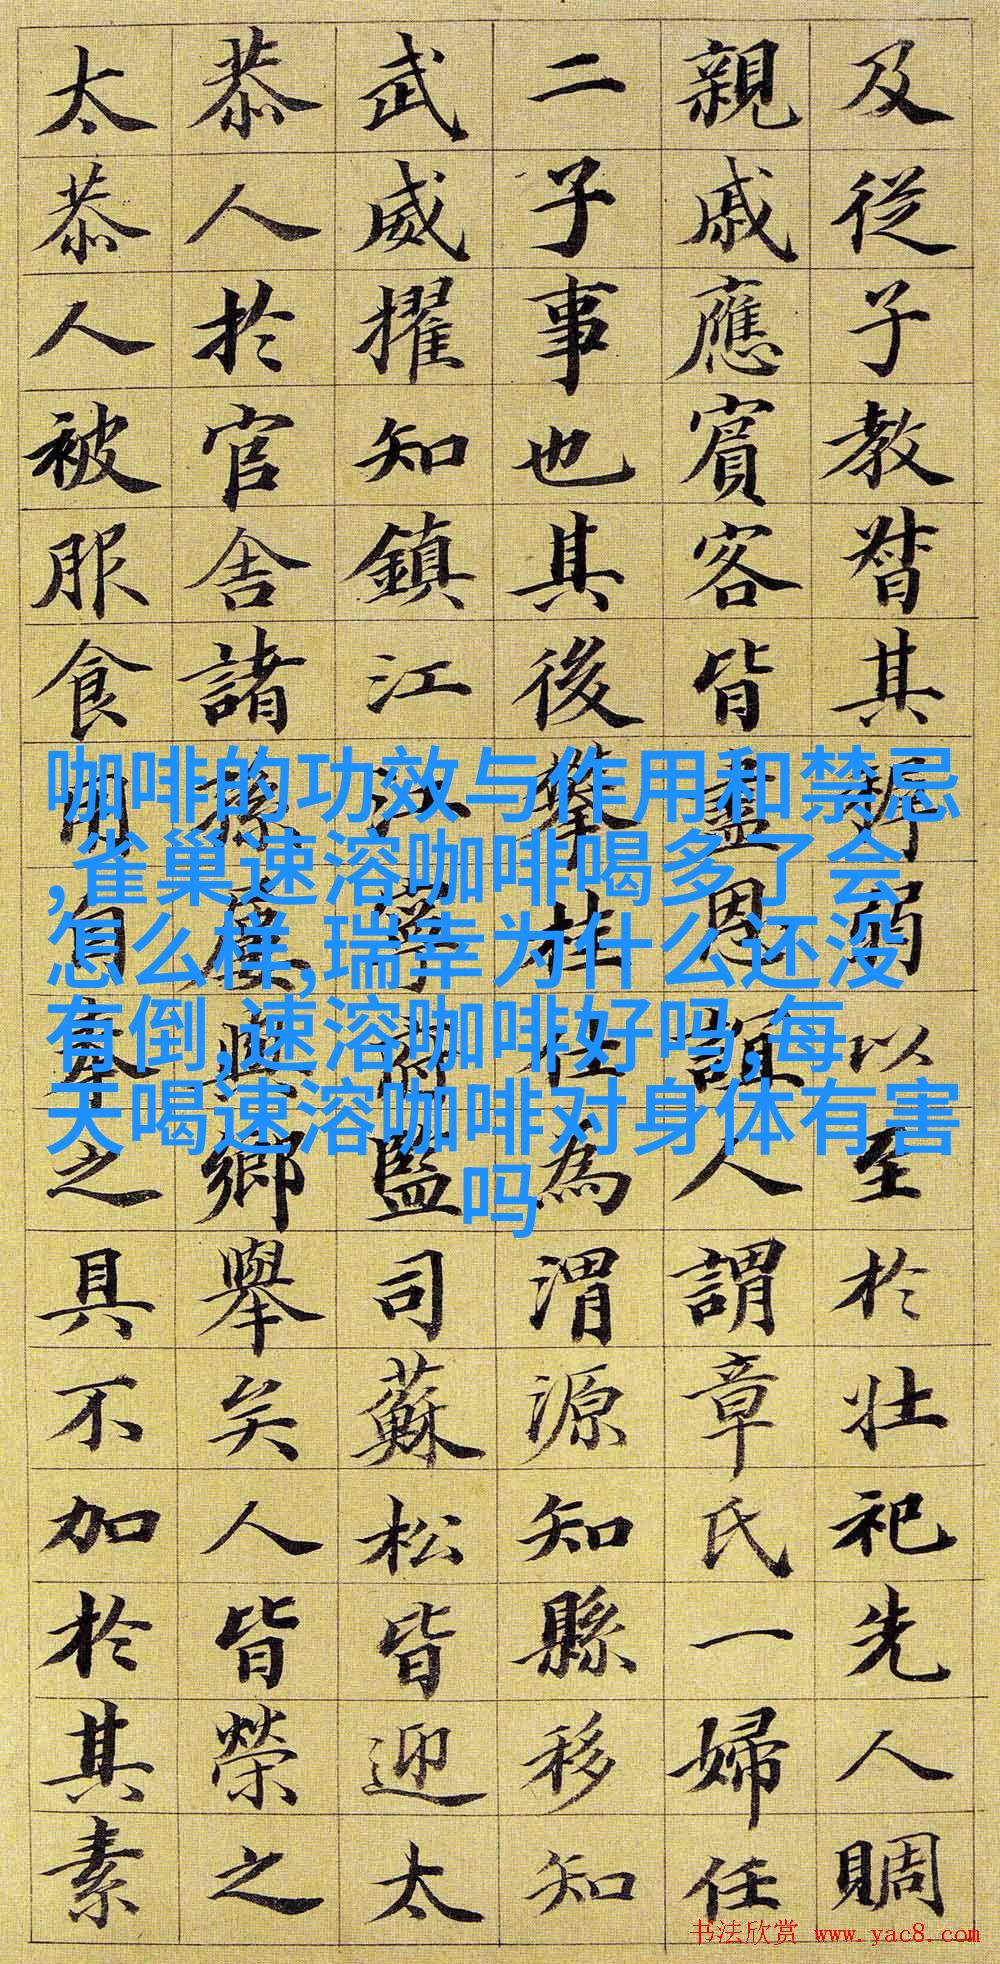 及從子教督其弱以至於壯祀先人賙
親戚應賓客皆盡恩誼人謂章氏一婦任
二子事也其後攀桂任為渭源知縣移知
武威擢知鎮江江寧府監司蘇松皆迎太
恭人於官舍諸孫與鄉舉矣人皆榮之
太恭人被服食用自奉之具不加於其素
咖啡的功效与作用和禁忌
,雀巢速溶咖啡喝多了会
怎么样,瑞幸为什么还没
有倒,速溶咖啡好吗,每
天喝速溶咖啡对身体有害
吗
书法欣赏 www.yac8.com